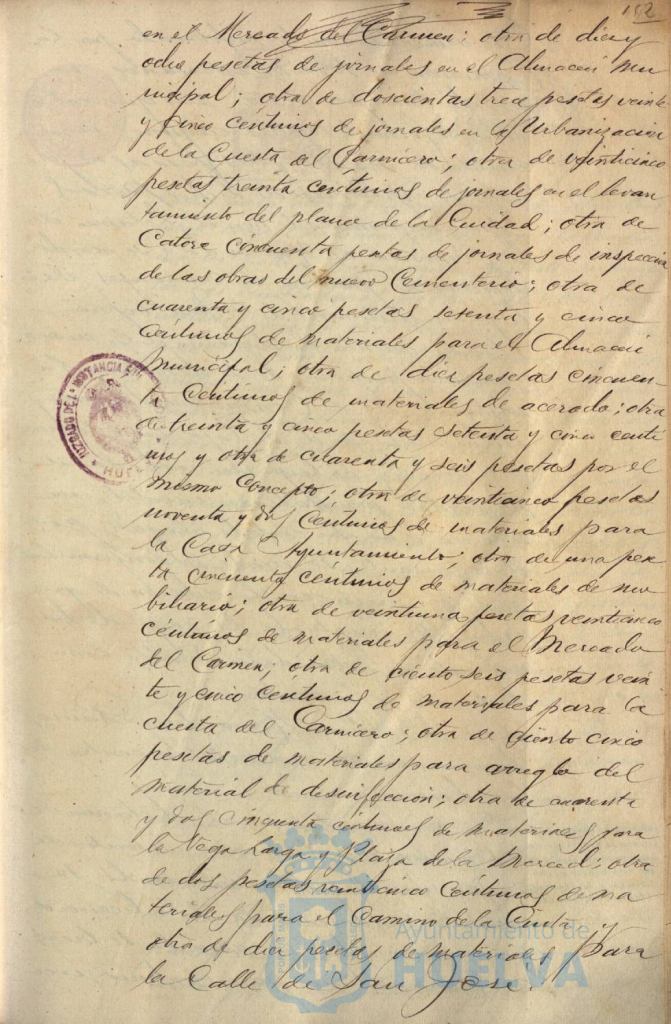 152
en el Mercado del Carmen; otra de diez y
ocho pesetas de jornales en el Almacen Mu
nicipal; otra de doscientas trece pesetas veinte
y cinco centimos de jornales en la Urbanización
de la Cuesta del Carnicero; otra de veinticinco
pesetas treinta céntimos de jornales en el levan
tamiento del plano de la Ciudad; otra de
Catorce cincuenta pesetas de jornales de inspección
de las obras del nuevo Cementerio; otra de
cuarenta y cinco pesetas sesenta y cinco
céntimos de materiales para el Almacen
Municipal; otra de diez pesetas cincuen
ta centimos de materiales de acerado; otra
de treinta y cinco pesetas setenta y cinco centi
mos y otra de cuarenta y seis pesetas por el
mismo Concepto; otra de veinticinco pesetas
noventa y dos céntimos de materiales para
la Casa Ayuntamiento; otra de una pese
ta cincuenta céntimos de materiales de mo
biliario; otra de veintiuna pesetas veinticinco
céntimos de materiales para el Mercado
del Carmen; otra de ciento seis pesetas vein
te y cinco centimos de materiales para la
cuesta del Carnicero; otra de ciento cinco
pesetas de materiales para arreglo del
material de desinfección; otra de cuarenta
y dos cincuenta céntimos de materiales para
la Vega Larga y Plaza de la Merced; otra
de dos pesetas veinticinco céntimos de ma
teriales para el Camino de la Cinta y
otra de diez pesetas de materiales para
la Calle de San José.
JUZGADO DE 1ª INSTANCIA
HUELVA
Ayuntamiento de
HUELVA